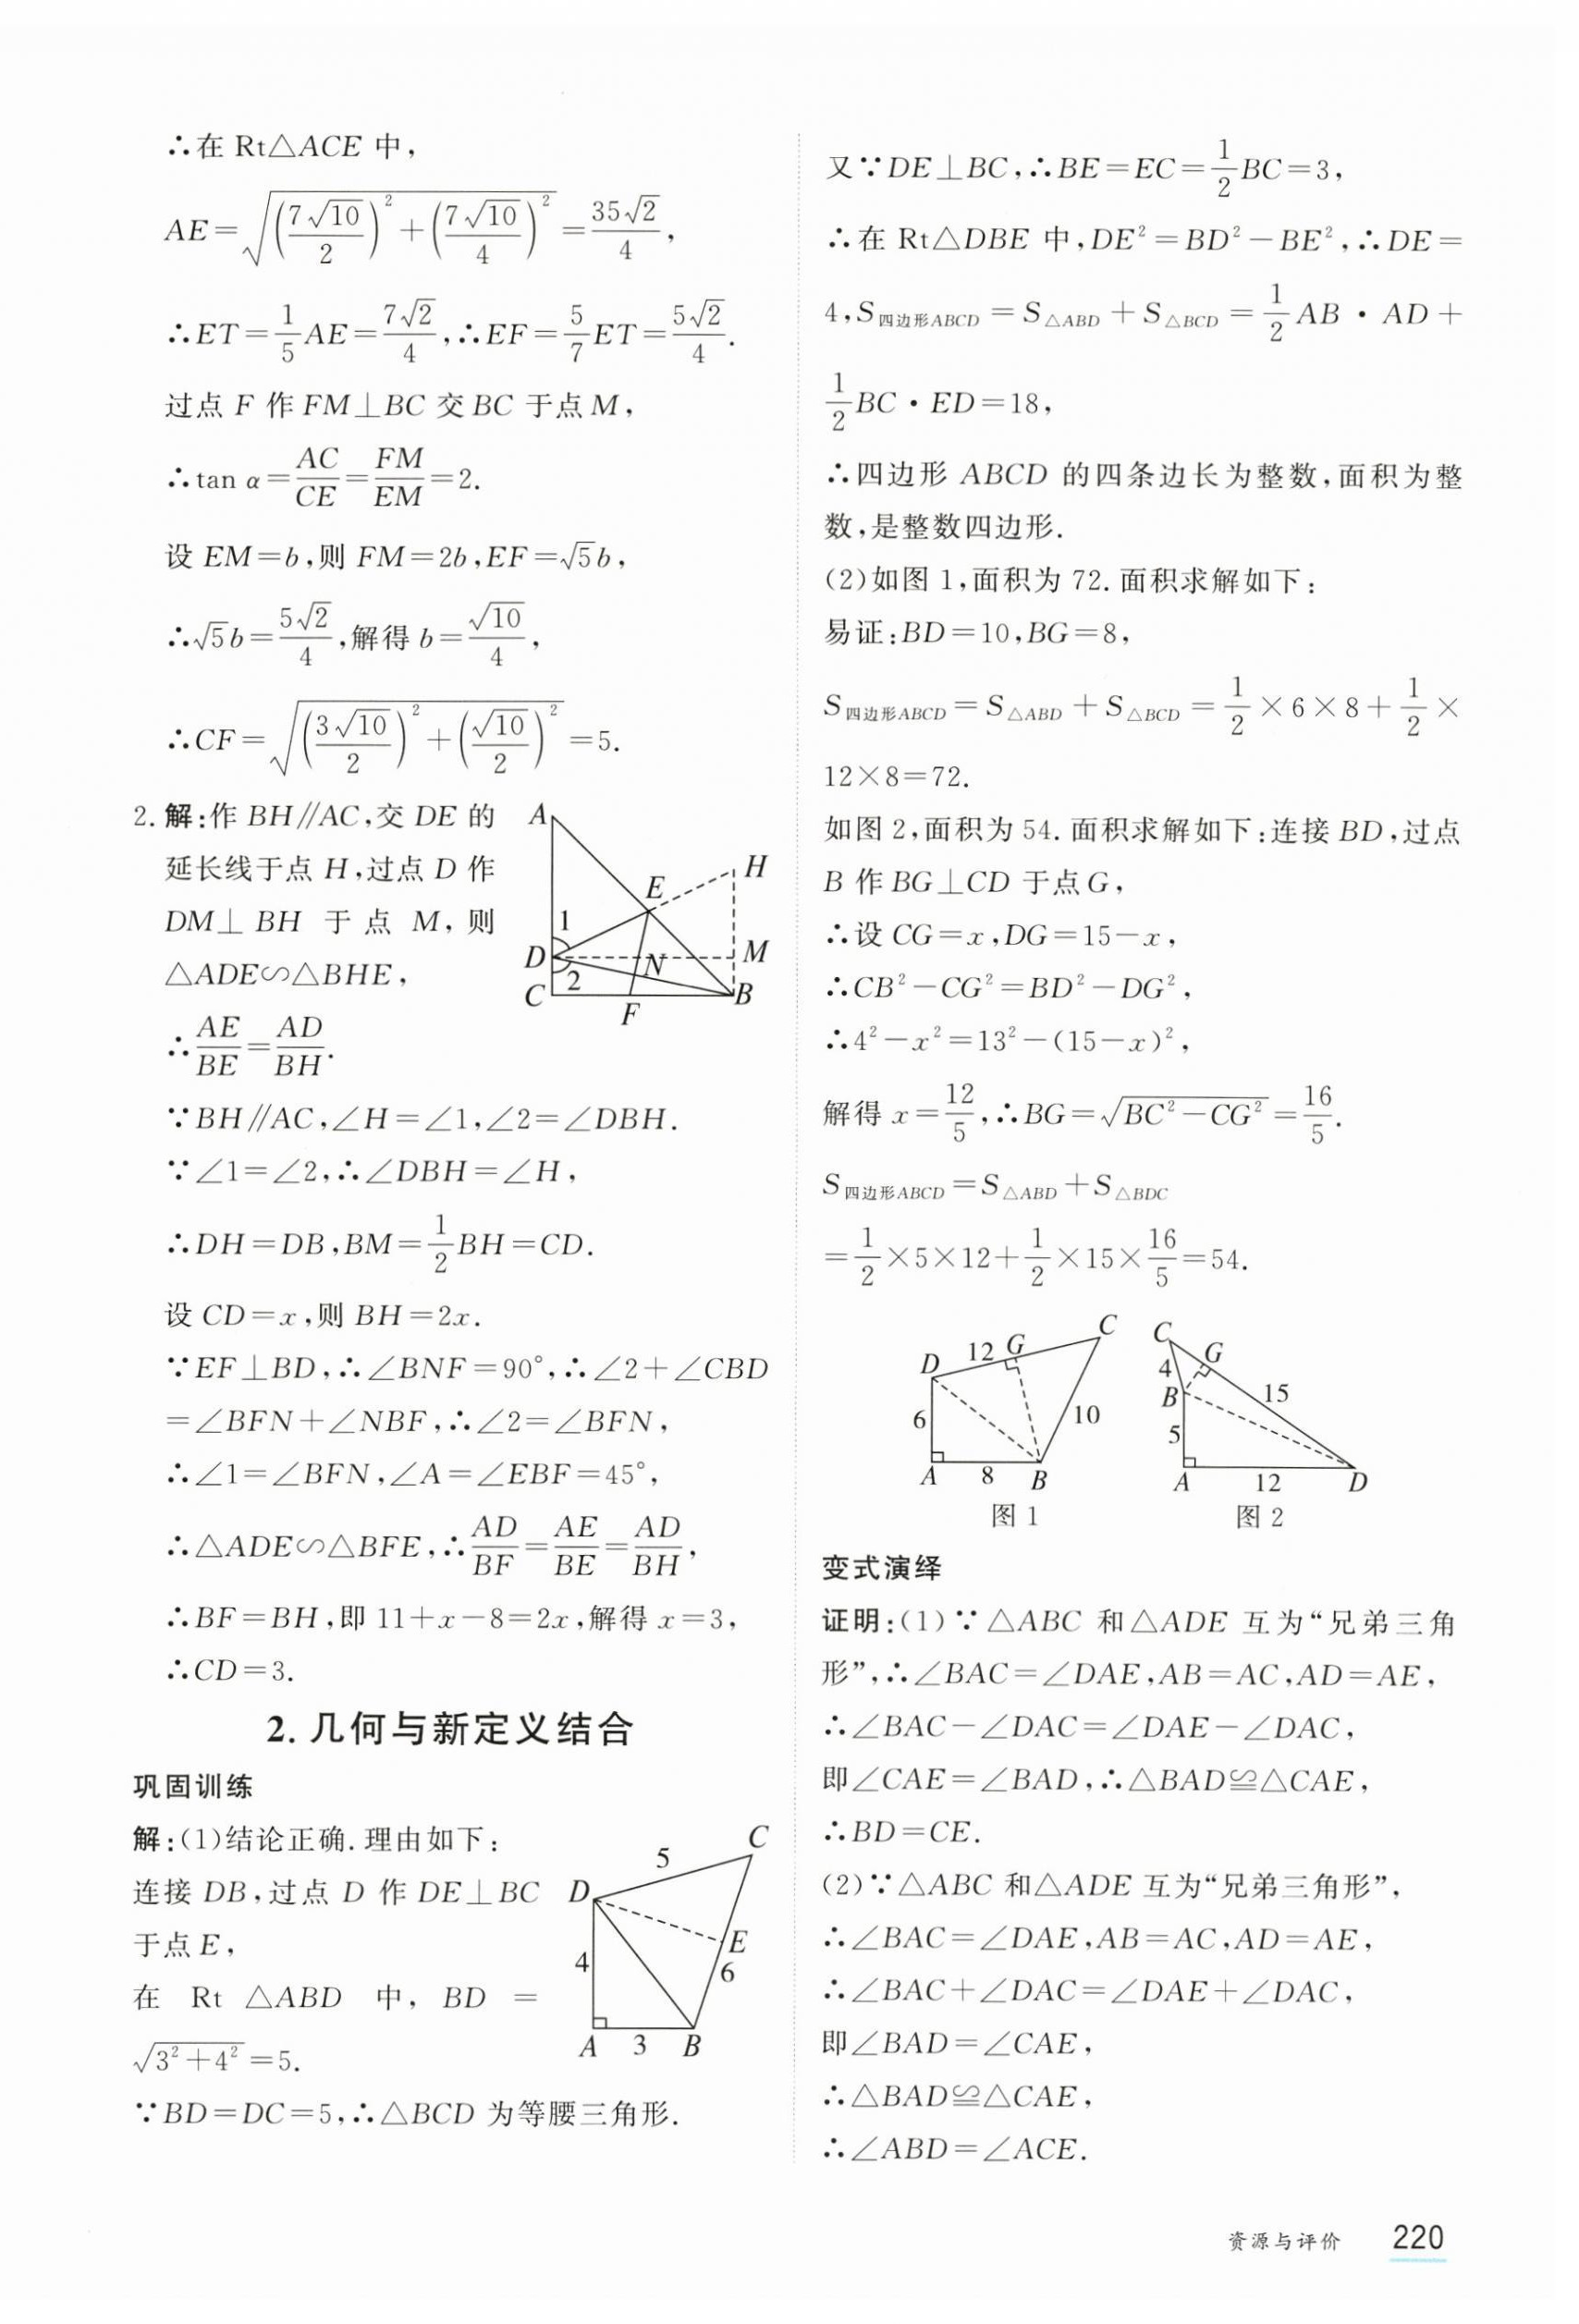 ∴在 Rt△ACE 中,
AE=√((7√10/2)²+(7√10/4)²)=35√2/4,
∴ET=1/5AE=7√2/4,∴EF=5/7ET=5√2/4.
过点 F 作 FM⊥BC 交 BC 于点 M,
∴tan α=AC/CE=FM/EM=2.
设 EM=b,则 FM=2b,EF=√5b,
∴√5b=5√2/4,解得 b=√10/4,
∴CF=√((3√10/2)²+(√10/2)²)=5.
2.解:作 BH∥AC,交 DE 的
延长线于点 H,过点 D 作
DM⊥ BH 于 点 M, 则
△ADE∽△BHE,
∴AE/BE=AD/BH.
A
H
E
1
D
M
N
2
C
B
F
∵BH∥AC,∠H=∠1,∠2=∠DBH.
∵∠1=∠2,∴∠DBH=∠H,
∴DH=DB,BM=1/2BH=CD.
设 CD=x,则 BH=2x.
∵EF⊥BD,∴∠BNF=90°,∴∠2+∠CBD
=∠BFN+∠NBF,∴∠2=∠BFN,
∴∠1=∠BFN,∠A=∠EBF=45°,
∴△ADE∽△BFE,∴AD/BF=AE/BE=AD/BH,
∴BF=BH,即 11+x-8=2x,解得 x=3,
∴CD=3.
2. 几何与新定义结合
巩固训练
解:(1)结论正确.理由如下:
连接 DB,过点 D 作 DE⊥BC
于点 E,
在 Rt △ABD 中, BD =
√(3²+4²)=5.
C
5
D
E
4
6
A 3 B
∵BD=DC=5,∴△BCD 为等腰三角形.
又∵DE⊥BC,∴BE=EC=1/2BC=3,
∴在 Rt△DBE 中,DE²=BD²-BE²,∴DE=
4,S四边形ABCD=S△ABD+S△BCD=1/2AB·AD+
1/2BC·ED=18,
∴四边形 ABCD 的四条边长为整数,面积为整
数,是整数四边形.
(2)如图 1,面积为 72.面积求解如下:
易证:BD=10,BG=8,
S四边形ABCD=S△ABD+S△BCD=1/2×6×8+1/2×
12×8=72.
如图 2,面积为 54.面积求解如下:连接 BD,过点
B 作 BG⊥CD 于点 G,
∴设 CG=x,DG=15-x,
∴CB²-CG²=BD²-DG²,
∴4²-x²=13²-(15-x)²,
解得 x=12/5,∴BG=√(BC²-CG²)=16/5.
S四边形ABCD=S△ABD+S△BDC
=1/2×5×12+1/2×15×16/5=54.
D 12 G C
6 10
A 8 B
图 1
C G
4
B 15
5
A 12 D
图 2
变式演绎
证明:(1)∵△ABC 和△ADE 互为“兄弟三角
形”,∴∠BAC=∠DAE,AB=AC,AD=AE,
∴∠BAC-∠DAC=∠DAE-∠DAC,
即∠CAE=∠BAD,∴△BAD≌△CAE,
∴BD=CE.
(2)∵△ABC 和△ADE 互为“兄弟三角形”,
∴∠BAC=∠DAE,AB=AC,AD=AE,
∴∠BAC+∠DAC=∠DAE+∠DAC,
即∠BAD=∠CAE,
∴△BAD≌△CAE,
∴∠ABD=∠ACE.
资源与评价 220